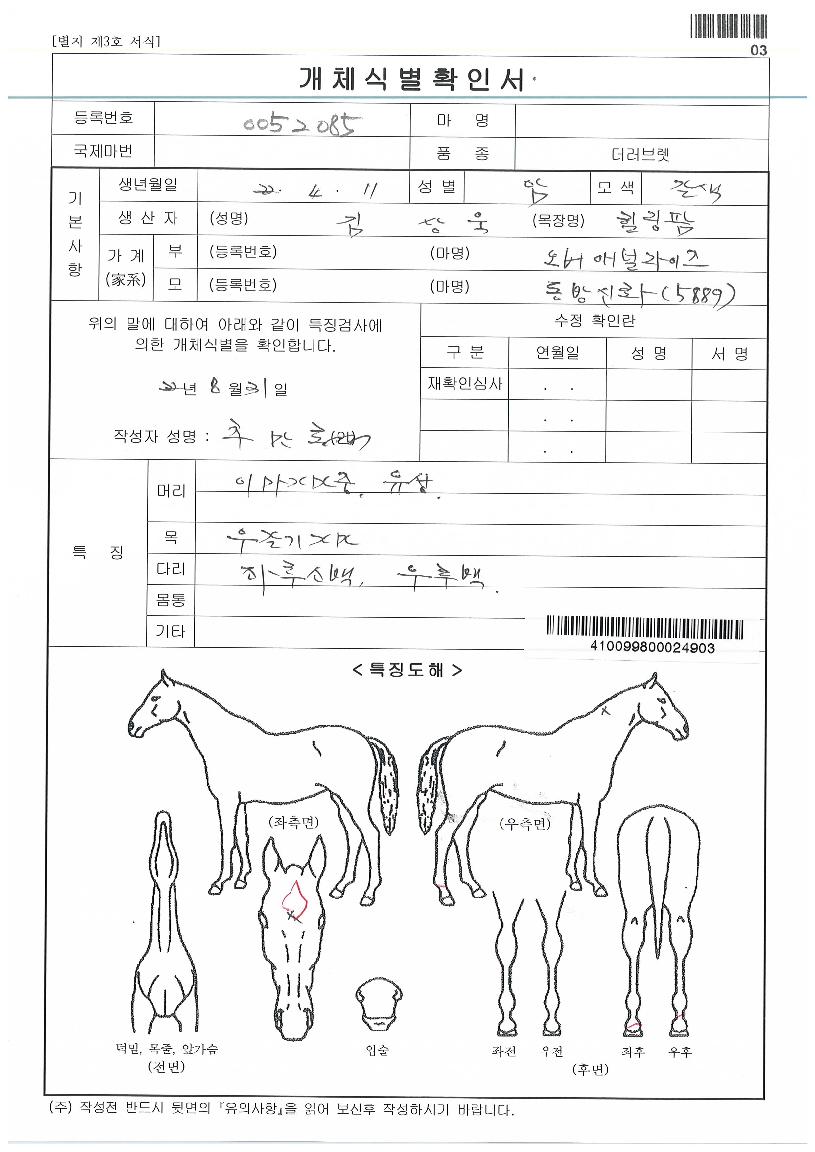 [별지 제3호 서식]
03
개체식별확인서
등록번호 0052085 마 명
국제마번 품 종 더러브렛
기본사항
생년월일 22. 4. 11 성 별 암 모 색 갈색
생 산 자 (성명) 김 상 욱 (목장명) 힐링팜
가 계 (家系)
부 (등록번호) (마명) 오버애널라이즈
모 (등록번호) (마명) 동방신화(5889)
위의 말에 대하여 아래와 같이 특징검사에
의한 개체식별을 확인합니다.
22년 8월 31일
작성자 성명 :
수정 확인란
구 분 연월일 성 명 서 명
재확인심사 . .
. .
. .
특 징
머리
목
다리 우후백.
몸통
기타
410099800024903
< 특징도해 >
(좌측면) (우측면)
턱밑, 목줄, 앞가슴
(전면)
입술
좌전 우전 좌후 우후
(후면)
(주) 작성전 반드시 뒷면의 『유의사항』을 읽어 보신후 작성하시기 바랍니다.